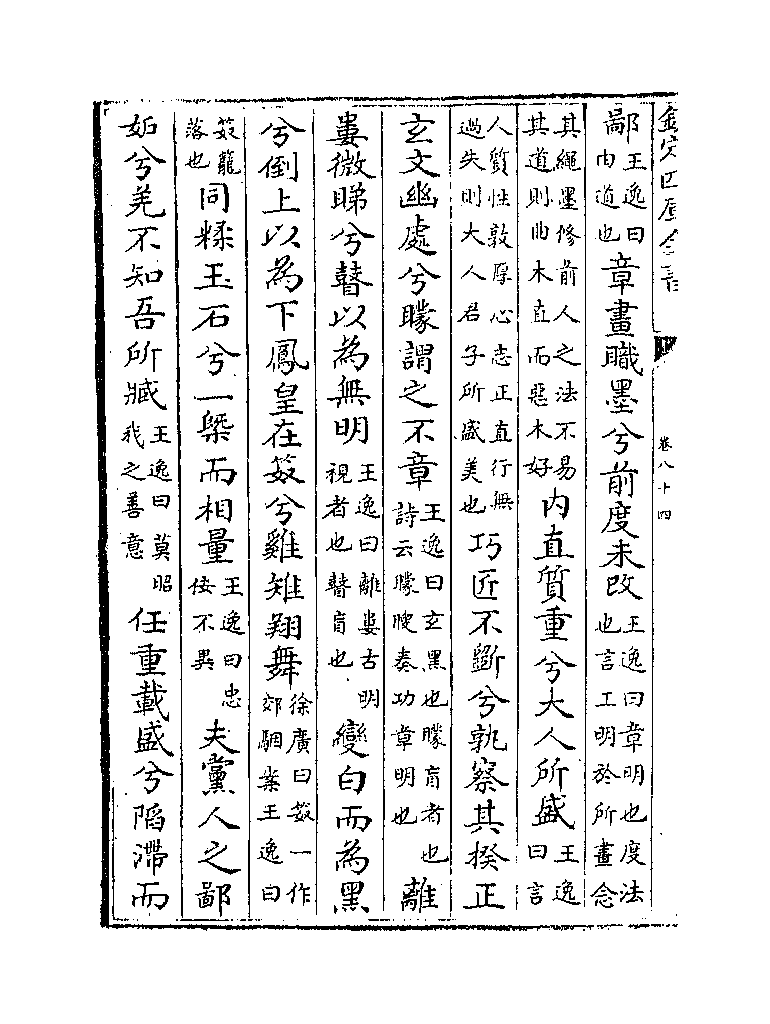 欽定四庫全書 卷八十四
鄙王逸曰内道也章畫職墨兮前度未改王逸曰章明也度法也言工明於所畫念
其繩墨修前人之法不易其道則曲木直而惡木好内直質重兮大人所盛王逸曰言
人質性敦厚心志正直行無過失則大人君子所盛美也巧匠不斵兮孰察其揆正
玄文幽處兮矇謂之不章王逸曰玄黑也矇盲者也詩云矇瞍奏功章明也離
婁微睇兮瞽以為無明王逸曰離婁古明視者也瞽盲也變白而為黑
兮倒上以為下鳳皇在笯兮雞雉翔舞徐廣曰笯一作郊駰案王逸曰
笯籠落也同糅玉石兮一槩而相量王逸曰忠佞不異夫黨人之鄙
妬兮羌不知吾所臧王逸曰莫昭我之善意任重載盛兮陷滯而